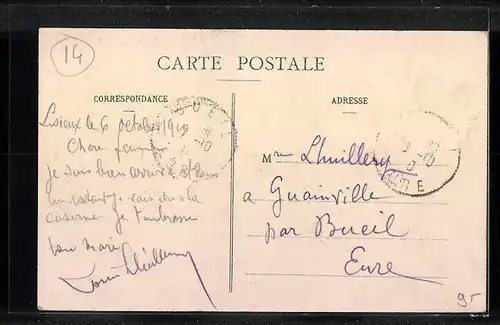 14
CARTE POSTALE
CORRESPONDANCE
ADRESSE
BUEIL
EURE
Lisieux le 6 octobre 1910
Chère femme
Je suis bien arrivé et dans
un instant je vais à la
caserne Je t'embrasse
ton mari
Lhuillery
Mme Lhuillery
a Guainville
par Bueil
Eure
9-